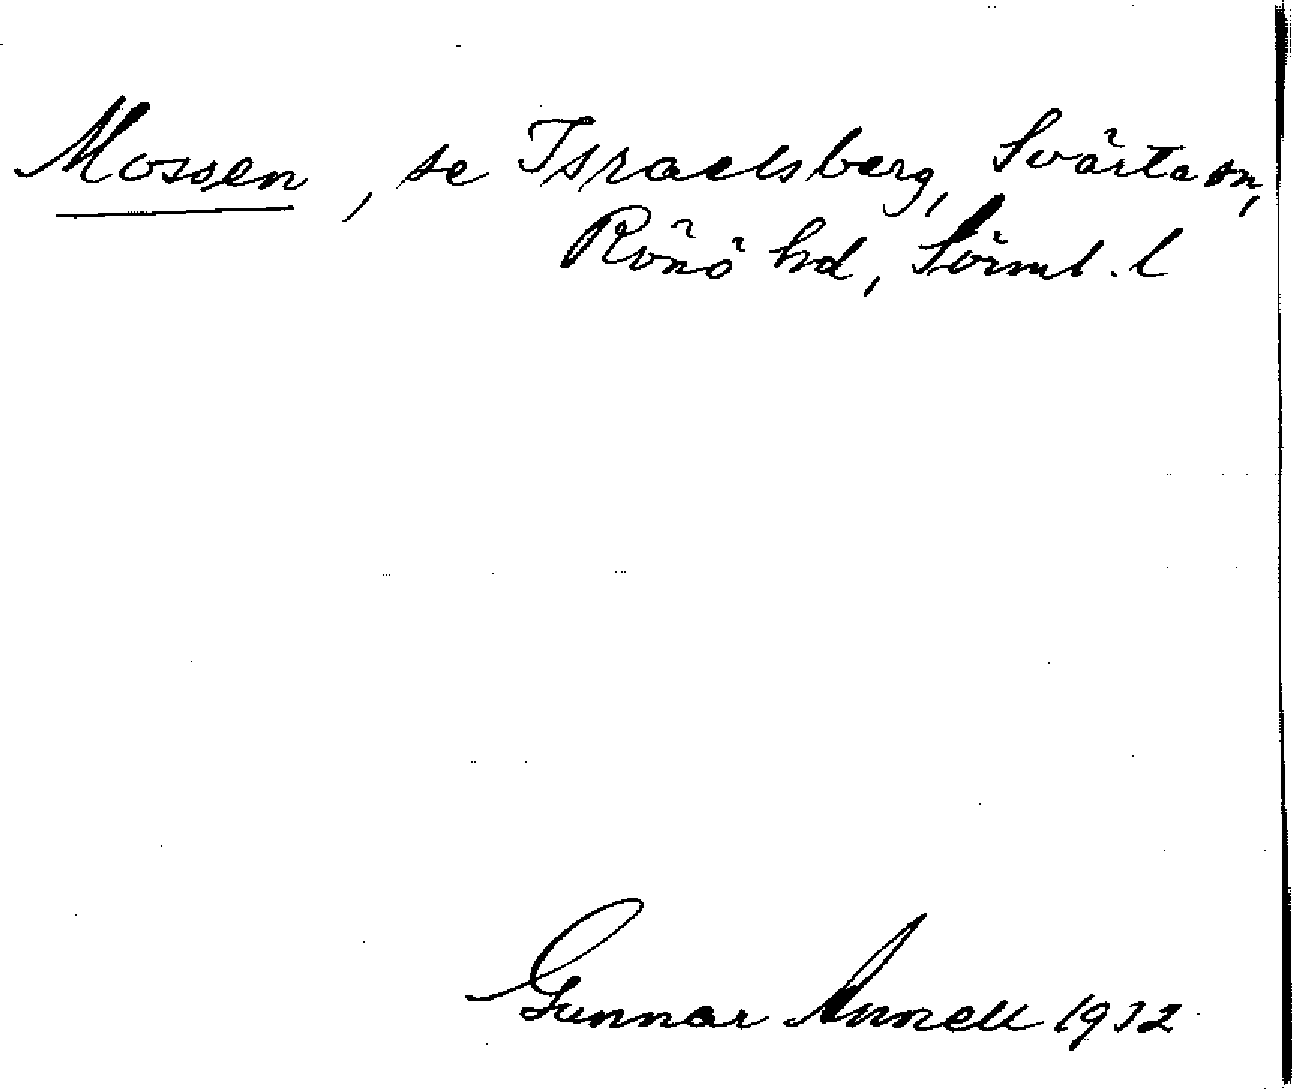 Mossen, se Israelsberg, Svärta sn,
Rönö hd, Sörml. l
Gunnar Annell 1932